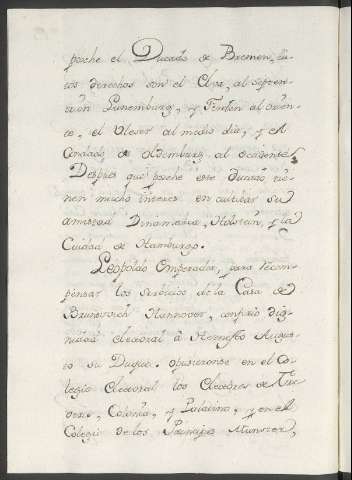 porche el Ducado de Bremen, cu
ios derechos son el Elva, al septen-
trion Lunemburg, y Ferden al orien-
te, el Veser al medio dia, y el
Condado de oldemburg al occidente
Despues que porche este Ducado tie
nen mucho interes en cultivar su
amistad Dinamarca, Holstein, y la
Ciudad de Hamburgo.
Leopoldo Emperador, para recom-
pensar los servicios de la Casa de
Brunsvich Hannover, confirio dig
nidad electoral à Hernesto Augus-
to su Duque. opusieronse en el Co-
legio Electoral los Electores de Tre
veris, Colonia, y Palatino, y en el
Colegio de los Principes Munster,